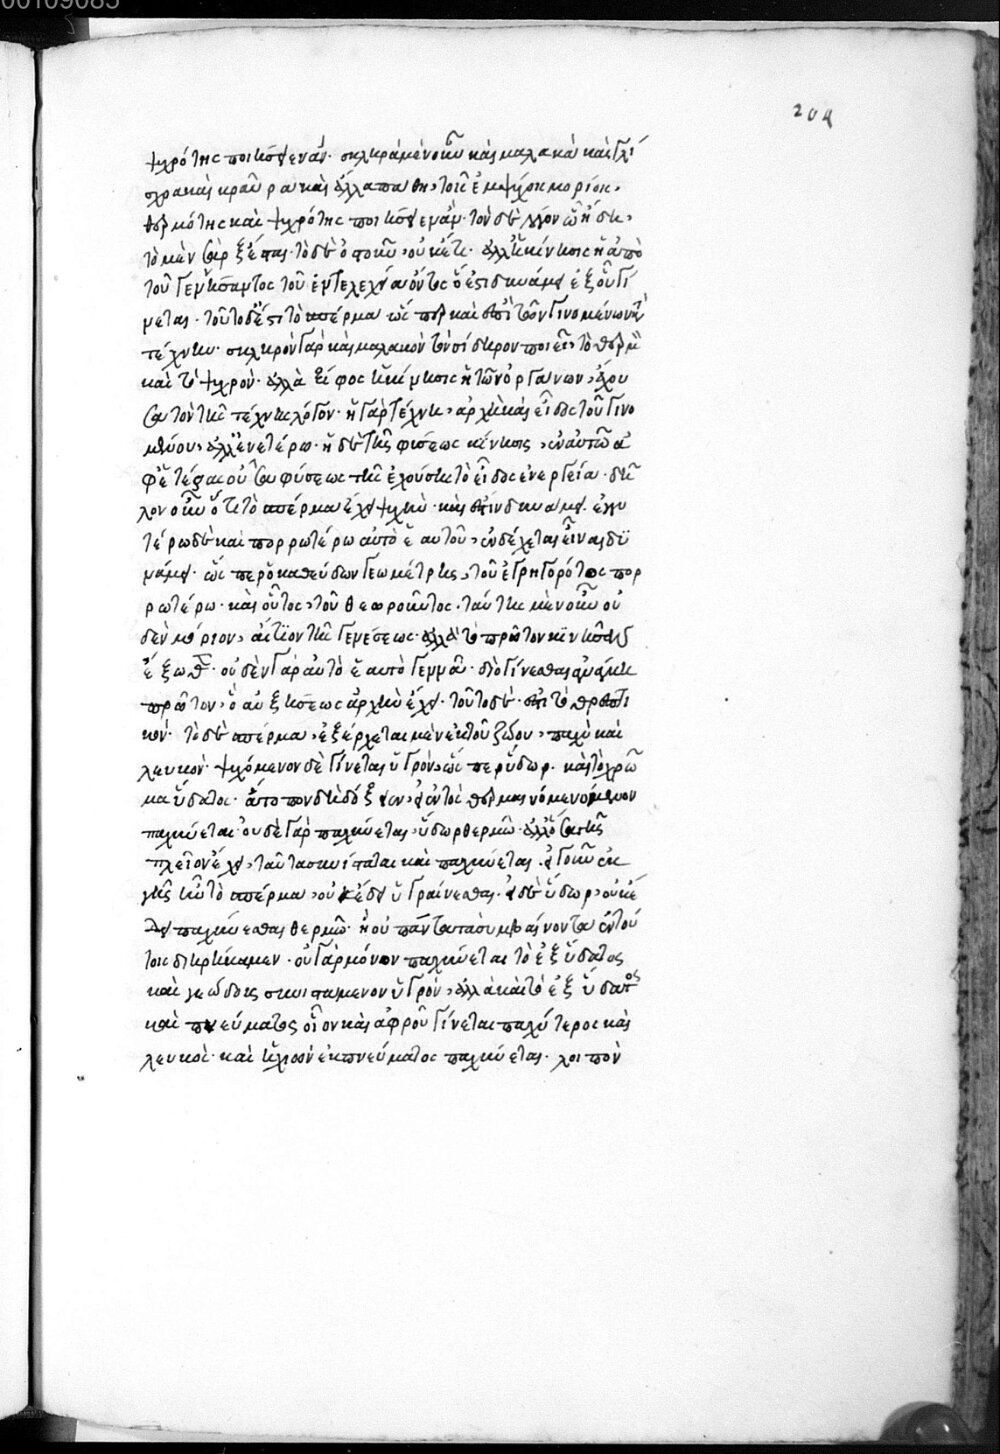 204
ψυχρότης ποιήσειεν ἄν· σκληρὰ μὲν οὖν καὶ μαλακὰ καὶ γλί
σχρα καὶ κραῦρα καὶ ἄλλα πάθη, τοῖς ἐμψύχοις μορίοις,
θερμότης καὶ ψυχρότης ποιήσειεν ἄν· τὸν δὲ λόγον ᾧ ἤδη,
τὸ μὲν σὰρξ ἐστὶ· τὸ δὲ ὀστοῦν, οὐκέτι· ἀλλ' ἡ κίνησις ἡ ἀπὸ
τοῦ γεννήσαντος τοῦ ἐντελεχείᾳ ὄντος ὅ ἐστι δυνάμει ἐξ οὗ γί
νεται· τοῦτο δέ ἐστι τὸ σπέρμα ὥσπερ καὶ ἐπὶ τῶν γινομένων κατὰ
τέχνην· σκληρὸν γὰρ καὶ μαλακὸν τὸν σίδηρον ποιεῖ, τὸ θερμὸν
καὶ τὸ ψυχρόν· ἀλλὰ ξίφος ἡ κίνησις ἡ τῶν ὀργάνων, ἔχου
σα τὸν τῆς τέχνης λόγον· ἡ γὰρ τέχνη, ἀρχὴ καὶ εἶδος τοῦ γινο
μένου, ἀλλ' ἐν ἑτέρῳ· ἡ δὲ τῆς φύσεως κίνησις, ἐν αὐτῷ ἀ
φ' ἑτέρας οὖσα φύσεως τῆς ἐχούσης τὸ εἶδος ἐνεργείᾳ· δῆ
λον οὖν ὅτι τὸ σπέρμα ἔχει ψυχὴν· καὶ ἔστιν δυνάμει· ἐγγυ
τέρω δὲ καὶ πορρωτέρω αὐτὸ ἑαυτοῦ, ἐνδέχεται εἶναι δυ
νάμει· ὥσπερ ὁ καθεύδων γεωμέτρης, τοῦ ἐγρηγορότος πορ
ρωτέρω· καὶ οὗτος, τοῦ θεωροῦντος. ταύτης μὲν οὖν οὐ
δὲν μόριον, αἴτιον τῆς γενέσεως· ἀλλὰ τὸ πρῶτον κινῆσαν
ἔξωθεν· οὐδὲν γὰρ αὐτὸ ἑαυτὸ γεννᾷ· διὸ γίνεσθαι ἀνάγκη
πρῶτον, ὃ αὐξήσεως ἀρχὴν ἔχει· τοῦτο δὲ· ἐστὶ τὸ θρεπτι
κόν· τὸ δὲ σπέρμα, ἐξέρχεται μὲν ἐκ τοῦ ζῴου, παχὺ καὶ
λευκόν· ψυχόμενον δὲ γίνεται ὑγρόν, ὥσπερ ὕδωρ· καὶ τὸ χρῶ
μα ὕδατος· ἄτοπον δὴ δόξειεν, εἰ ἐντὸς θερμαινόμενον
παχύνεται· οὐδὲ γὰρ παχύνεται, ὕδωρ θερμῷ· ἀλλ' ὅσα γῆς
πλεῖον ἔχει, ταῦτα συνίσταται καὶ παχύνεται. εἰ γοῦν ἐκ
γῆς ἦν τὸ σπέρμα, οὐκ ἔδει ὑγραίνεσθαι. εἰ δὲ ὕδωρ, οὐκ ἔ
δει παχύνεσθαι θερμῷ· ἢ οὐ πάντα τὰ συμβαίνοντα ἐν τού
τοις διῃρήκαμεν· οὐ γὰρ μόνον παχύνεται τὸ ἐξ ὕδατος
καὶ γεώδους συνιστάμενον ὑγρόν, ἀλλὰ καὶ τὸ ἐξ ὕδατος
καὶ πνεύματος οἷον καὶ ἀφροῦ γίνεται παχύτερος καὶ
λευκός· καὶ ἔλαιον ἐκ πνεύματος παχύνεται· λοιπὸν